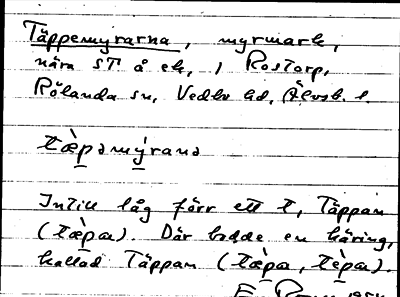 Täppemyrarna, myrmark,
nära ST å ek, i Rostorp,
Rölanda sn, Vedbo hd, Älvsb. l.
tæ̀pəmýranə
Intill låg förr ett t, Täppan
(tæ̀pa). Där bodde en käring,
kallad Täppan (tæ̀pa, tè̀pa).